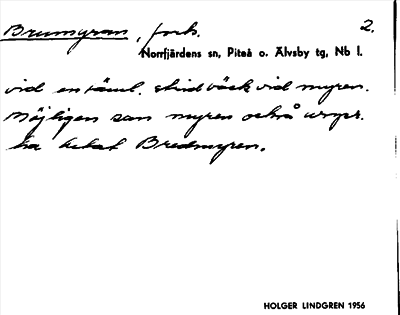 Brumyran, forts. 2.
Norrfjärdens sn, Piteå o. Älvsby tg, Nb l.
vid en täml. strid bäck vid myren.
Möjligen som myren också urspr.
ha hetat Bredmyren.
HOLGER LINDGREN 1956